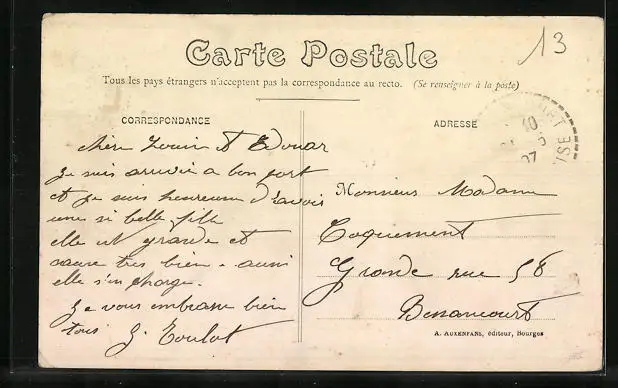 13
Carte Postale
Tous les pays étrangers n'acceptent pas la correspondance au recto. (Se renseigner à la poste)
CORRESPONDANCE
ADRESSE
chère Louise et Edouar
je suis arrivée a bon port
et je suis heureuse d'avoir
une si belle fille
elle est grande et
tres bien. aussi
elle s'en charge.
Je vous embrasse bien
tous J. Toulot
Monsieur Madame
Coquement
Grande rue 58
Bessancourt
A. AUXENFANS, éditeur, Bourges